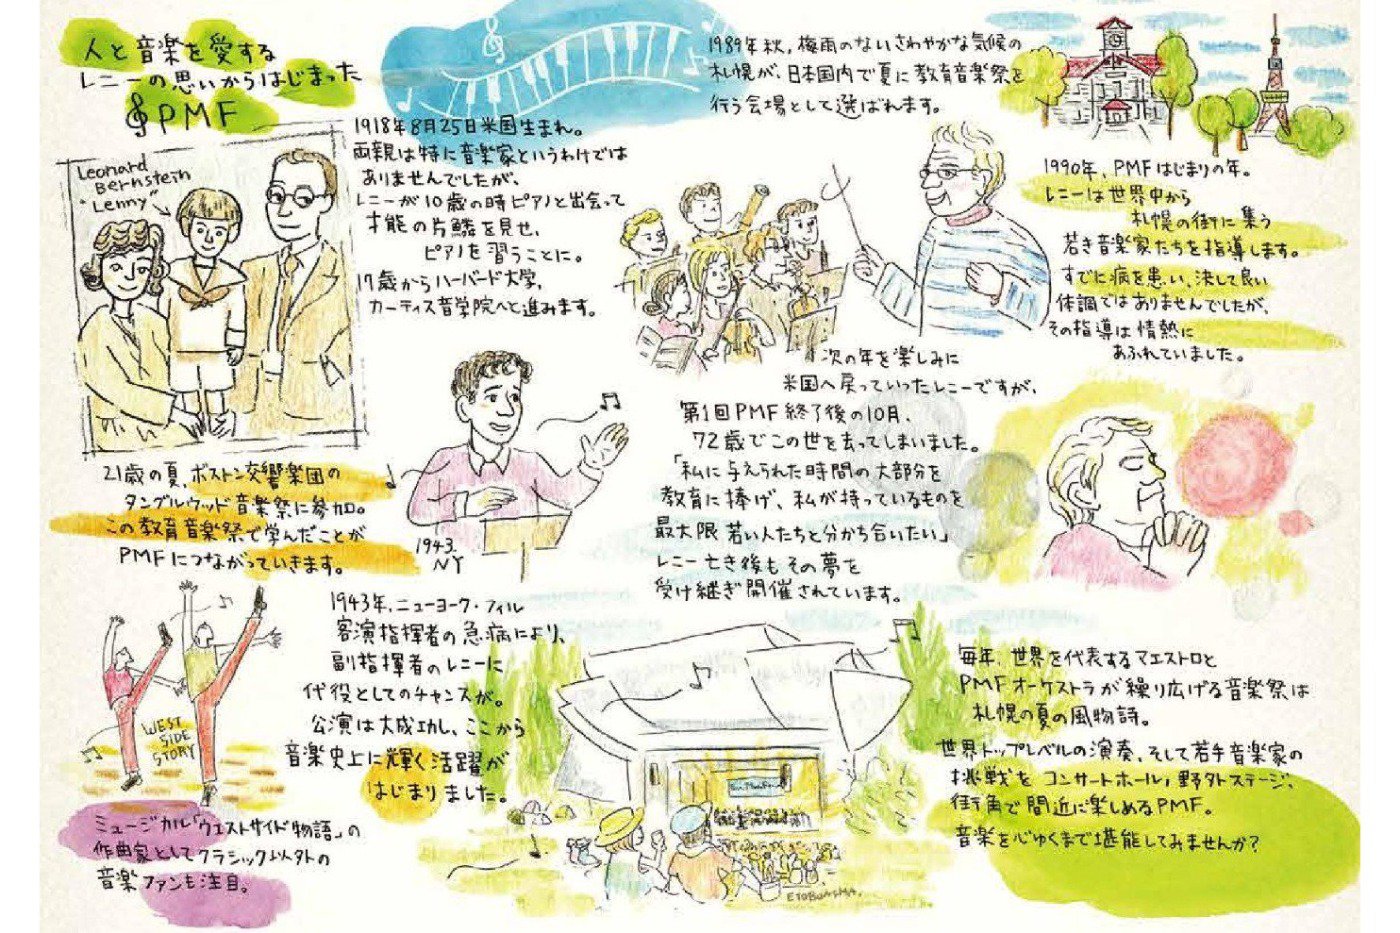 人と音楽を愛する
レニーの思いからはじまった
PMF
Leonard
Bernstein
"Lenny"
1918年8月25日米国生まれ。
両親は特に音楽家というわけでは
ありませんでしたが、
レニーが10歳の時ピアノと出会って
才能の片鱗を見せ、
ピアノを習うことに。
17歳からハーバード大学、
カーティス音学院へと進みます。
21歳の夏、ボストン交響楽団の
タングルウッド音楽祭に参加。
この教育音楽祭で学んだことが
PMFにつながっていきます。
1943.
NY
1943年、ニューヨーク・フィル
客演指揮者の急病により、
副指揮者のレニーに
代役としてのチャンスが。
公演は大成功し、ここから
音楽史上に輝く活躍が
はじまりました。
WEST
SIDE
STORY
ミュージカル「ウエストサイド物語」の
作曲家としてクラシック以外の
音楽ファンも注目。
1989年秋、梅雨のないさわやかな気候の
札幌が、日本国内で夏に教育音楽祭を
行う会場として選ばれます。
1990年、PMFはじまりの年。
レニーは世界中から
札幌の街に集う
若き音楽家たちを指導します。
すでに病を患い、決して良い
体調ではありませんでしたが、
その指導は情熱に
あふれていました。
次の年を楽しみに
米国へ戻っていったレニーですが、
第1回PMF終了後の10月、
72歳でこの世を去ってしまいました。
「私に与えられた時間の大部分を
教育に捧げ、私が持っているものを
最大限若い人たちと分かち合いたい」
レニー亡き後もその夢を
受け継ぎ開催されています。
毎年、世界を代表するマエストロと
PMFオーケストラが繰り広げる音楽祭は
札幌の夏の風物詩。
世界トップレベルの演奏、そして若手音楽家の
挑戦をコンサートホール、野外ステージ、
街角で間近に楽しめるPMF。
音楽を心ゆくまで堪能してみませんか?